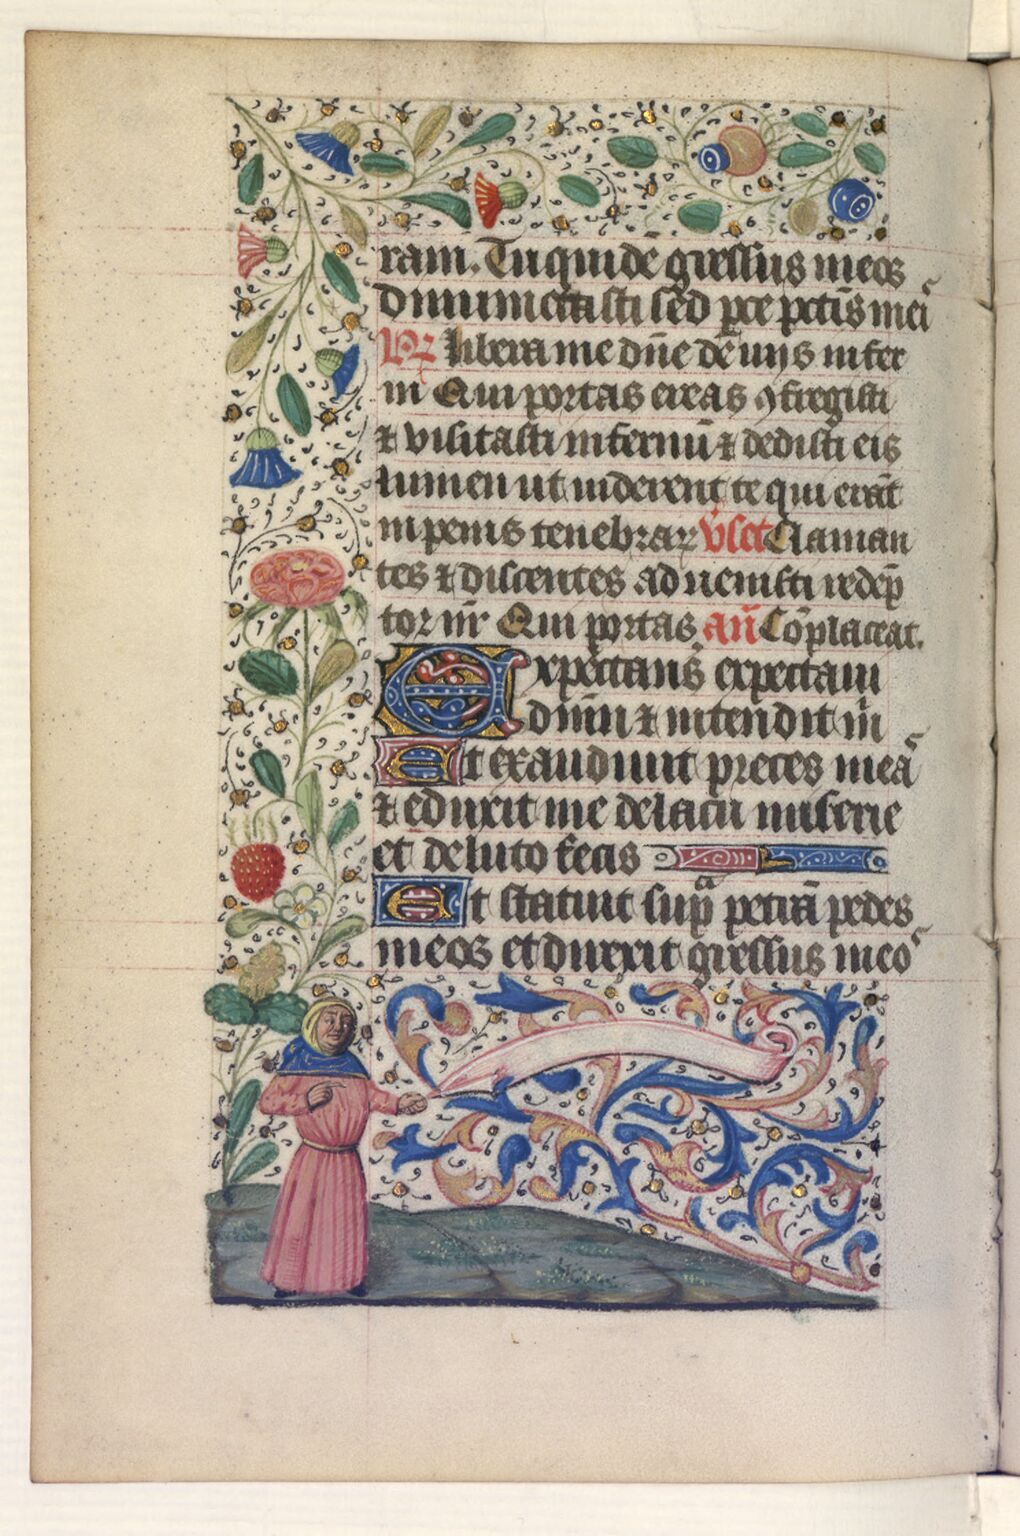 ram. Tu quidē gressus meos
dinumerasti sed pce pctīs mei
R̷ Libera me dn̄e de viis infer
ni Qui portas ereas ꝯfregisti
⁊ visitasti infernū ⁊ dedisti eis
lumen ut viderent te qui erāt
in penis tenebraꝝ v̄sꝰ Claman
tes ⁊ dicentes advenisti redēp
tor nr̄ Qui portas an̄ Cōplaceat.
Expectans expectavi
dn̄m ⁊ intendit m̄
Et exaudivit preces meas
⁊ eduxit me de lacu miserie
et de luto fecis
Et statuit supᵃ petrā pedes
meos et direxit gressus meos